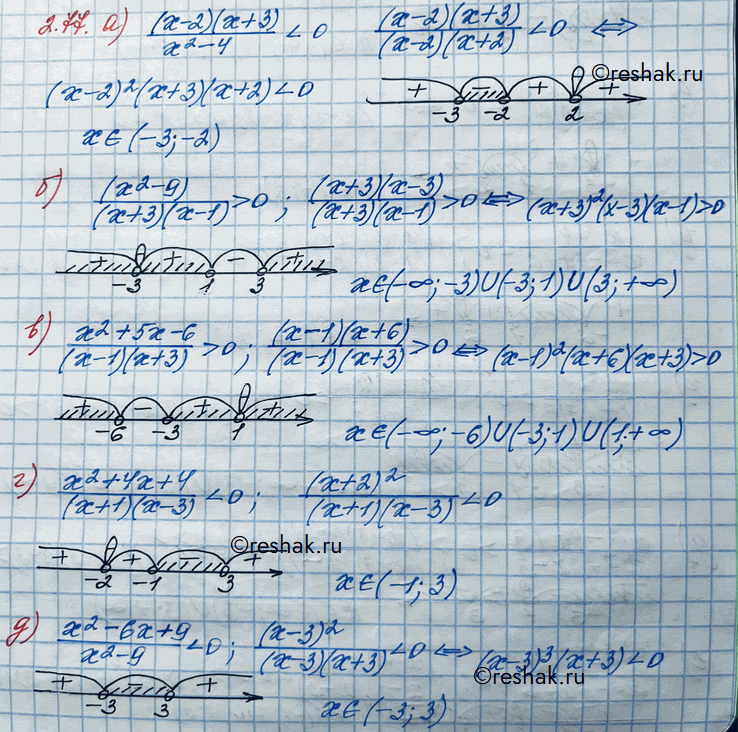 2.77. а) (x-2)(x+3)/(x²-4) < 0   (x-2)(x+3)/((x-2)(x+2)) < 0 ⟺
©reshak.ru
(x-2)²(x+3)(x+2) < 0   + - + +
-3 -2 2
x∈(-3;-2)
б) (x²-9)/((x+3)(x-1)) > 0 ; (x+3)(x-3)/((x+3)(x-1)) > 0 ⟺ (x+3)²(x-3)(x-1) > 0
+ + - +
-3 1 3   x∈(-∞;-3)∪(-3;1)∪(3;+∞)
в) (x²+5x-6)/((x-1)(x+3)) > 0 ; (x-1)(x+6)/((x-1)(x+3)) > 0 ⟺ (x-1)²(x+6)(x+3) > 0
+ - + +
-6 -3 1   x∈(-∞;-6)∪(-3;1)∪(1;+∞)
г) (x²+4x+4)/((x+1)(x-3)) < 0 ; (x+2)²/((x+1)(x-3)) < 0
©reshak.ru
+ + - +
-2 -1 3   x∈(-1;3)
д) (x²-6x+9)/(x²-9) < 0 ; (x-3)²/((x-3)(x+3)) < 0 ⟺ (x-3)³(x+3) < 0
©reshak.ru
+ - +
-3 3   x∈(-3;3)